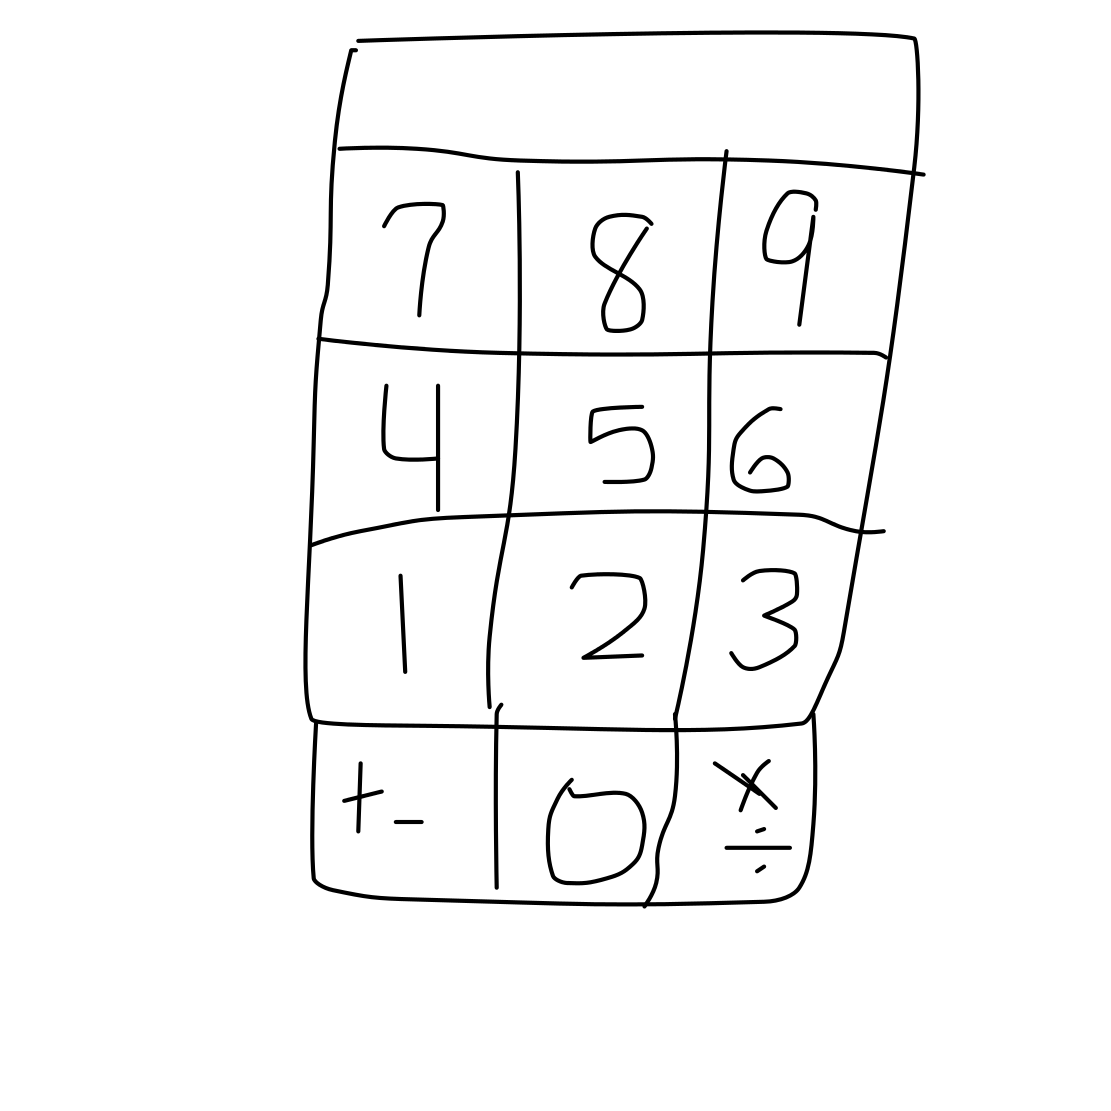 7 8 9
4 5 6
1 2 3
+- 0 ×
÷